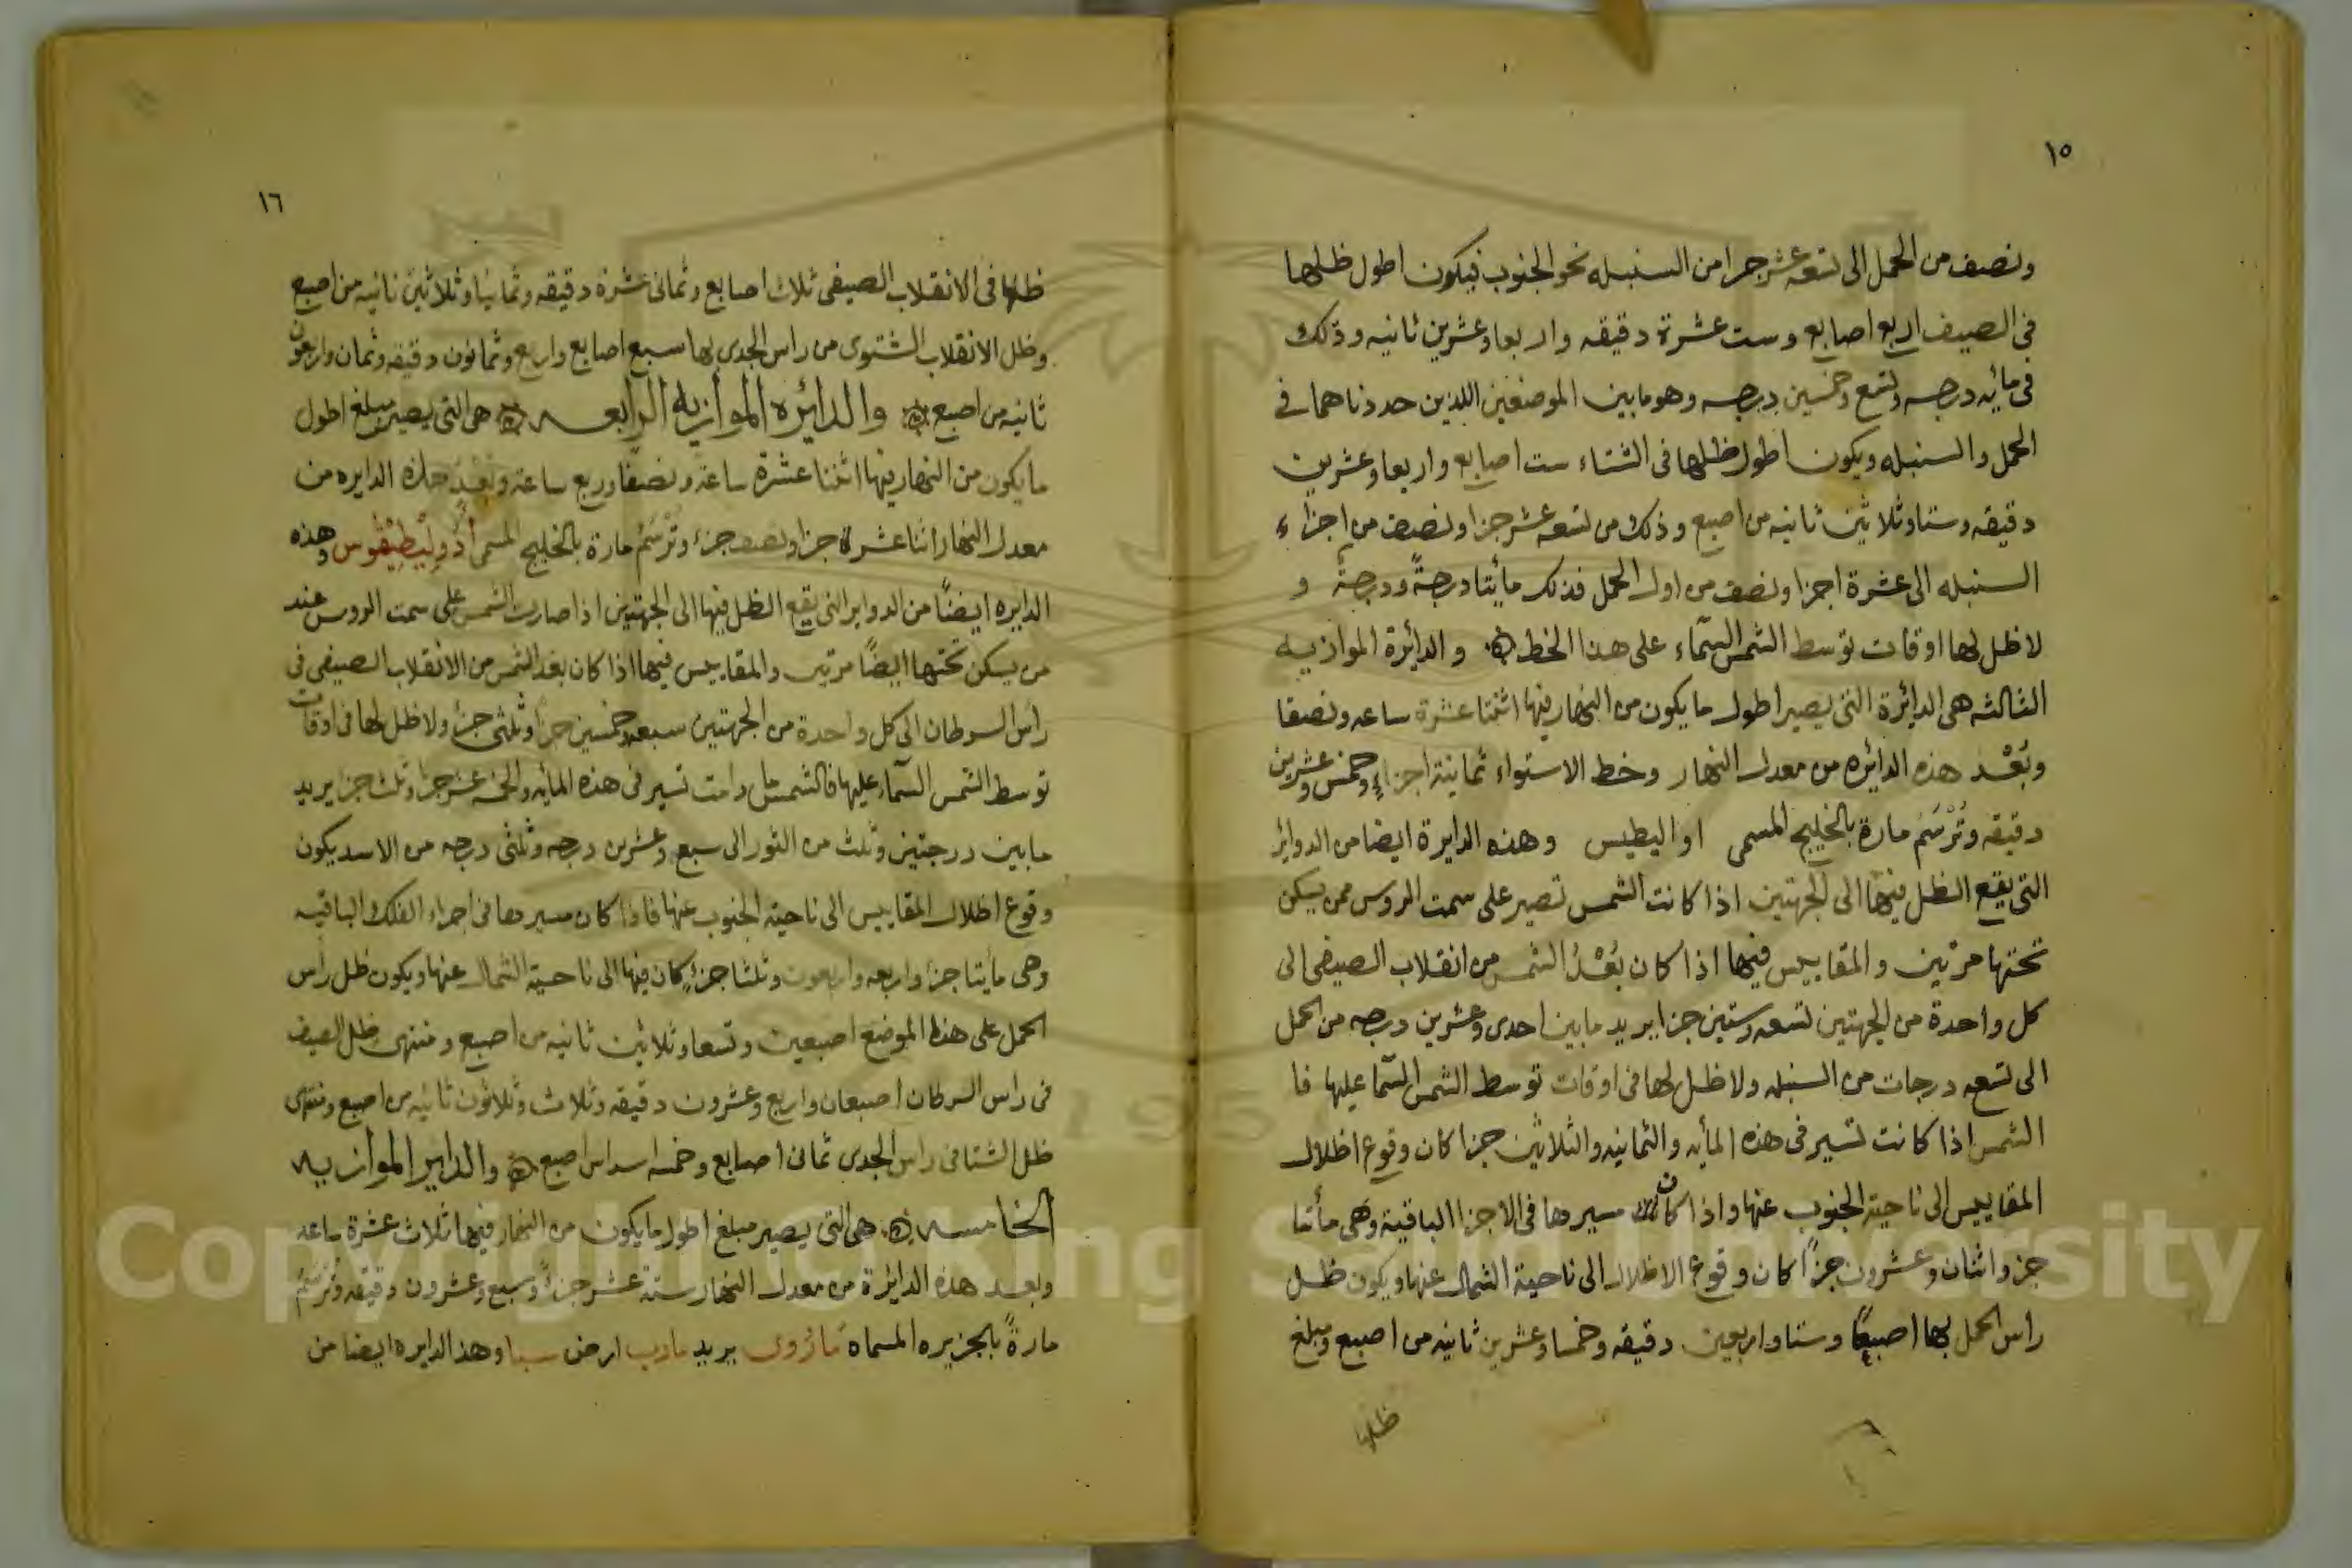 ١٥
ونصف من الحمل الى تسعه عشر جزا من السنبله نحو الجنوب فيكون اطول ظلها
فى الصيف اربع اصابع وست عشرة دقيقه واربعا وعشرين ثانيه وذلك
فى مائه درجه وتسع وخمسين درجه وهو ما بين الموضعين اللذين حددناهما فى
الحمل والسنبله ويكون اطول ظلها فى الشتاء ست اصابع واربعا وعشرين
دقيقه وستا وثلاثين ثانيه من اصبع وذلك من تسعه عشر جزا ونصف من اجزاء
السنبله الى عشرة اجزا ونصف من اول الحمل فذلك مأيتا درجةً ودرجةً و
لا ظل لها اوقات توسط الشمس السّماء على هذا الخط والدائرة الموازيه
الثالثه هى الدائرة التى يصير اطول ما يكون من النهار فيها اثنتا عشرة ساعه ونصفا
وبُعْد هذه الدائره من معدل النهار وخط الاستواء ثمانية اجزاءٍ وخمس وعشرين
دقيقه وتُرْسَم مارة بالخليج المسمى اواليطيس وهذه الدايرة ايضا من الدوائر
التى يقع الظل فيها الى الجهتين اذا كانت الشمس تصير على سمت الروس ممن يسكن
تحتها مرتين والمقاييس فيها اذا كان بُعْدُ الشمس من انقلاب الصيفى الى
كل واحدة من الجهتين تسعه وستين جزا يريد ما بين احدى وعشرين درجه من الحمل
الى تسعه درجات من السنبله ولا ظل لها فى اوقات توسط الشمس السّما عليها فا
الشمس اذا كانت تسير فى هذه المأيه والثمانيه والثلاثين جزا كان وقوع اظلال
المقاييس الى ناحية الجنوب عنها واذا كان مسيرها فى الاجزا الباقية وهى مأتا
جز واثنان وعشرون جزاً كان وقوع الاظلال الى ناحية الشمال عنها ويكون ظل
راس الحمل بها اصبعًا وستا واربعين دقيقه وخمسا وعشرين ثانيه من اصبع ومبلغ
ظلها
١٦
ظلها فى الانقلاب الصيفى ثلاث اصابع وثمانى عشرة دقيقه وثمانيا وثلاثين ثانيه من اصبع
وظل الانقلاب الشتوى من راس الجدى بها سبع اصابع واربع وثمانون دقيقه وثمان واربعون
ثانيه من اصبع والدائره الموازيه الرابعه هى التى يصير مبلغ اطول
ما يكون من النهار فيها اثنتا عشرة ساعة ونصفا وربع ساعة وبُعْدُ هذه الدايره من
معدل النهار اثنا عشرة جزا ونصف جزء وتُرْسَمُ مارة بالخليج المسمى أدوليطيقوس وهذه
الدايره ايضًا من الدواير التى يقع الظل فيها الى الجهتين اذا صارت الشمس على سمت الروس عند
من يسكن تحتها ايضًا مرتين والمقاييس فيها اذا كان بعد الشمس من الانقلاب الصيفى فى
رأس السرطان الى كل واحدة من الجهتين سبعه وخمسين جزاً وثلثى جزء ولا ظل لها فى اوقات
توسط الشمس السّماء عليها فالشمس ما دامت تسير فى هذه المأيه والخمسه عشر جزا وثلث جزا يريد
ما بين درجتين وثلث من الثور الى سبع وعشرين درجه وثلثى درجه من الاسد يكون
وقوع اظلال المقاييس الى ناحية الجنوب عنها فاذا كان مسيرها فى اجزاء الفلك الباقيه
وهى مأيتا جزا واربعه واربعون وثلثا جزءٍ كان فيها الى ناحية الشمال عنها ويكون ظل رأس
الحمل على هذا الموضع اصبعين وتسعا وثلاثين ثانيه من اصبع ومنتهى ظل الصيف
فى راس السرطان اصبعان واربع وعشرون دقيقه وثلاث وثلاثون ثانيه من اصبع ومنتهى
ظل الشتا فى راس الجدى ثمانى اصابع وخمسه اسداس اصبع والداير الموازيه
الخامسه هى التى يصير مبلغ اطول ما يكون من النهار فيها ثلاث عشرة ساعه
وبعد هذه الدائرة من معدل النهار ستة عشر جزءً وسبع وعشرون دقيقه وتُرْسَمُ
مارةً بالجزيره المسماه مأروى يريد مارب ارض سبا وهذ الدايره ايضا من
Copyright © King Saud University
195